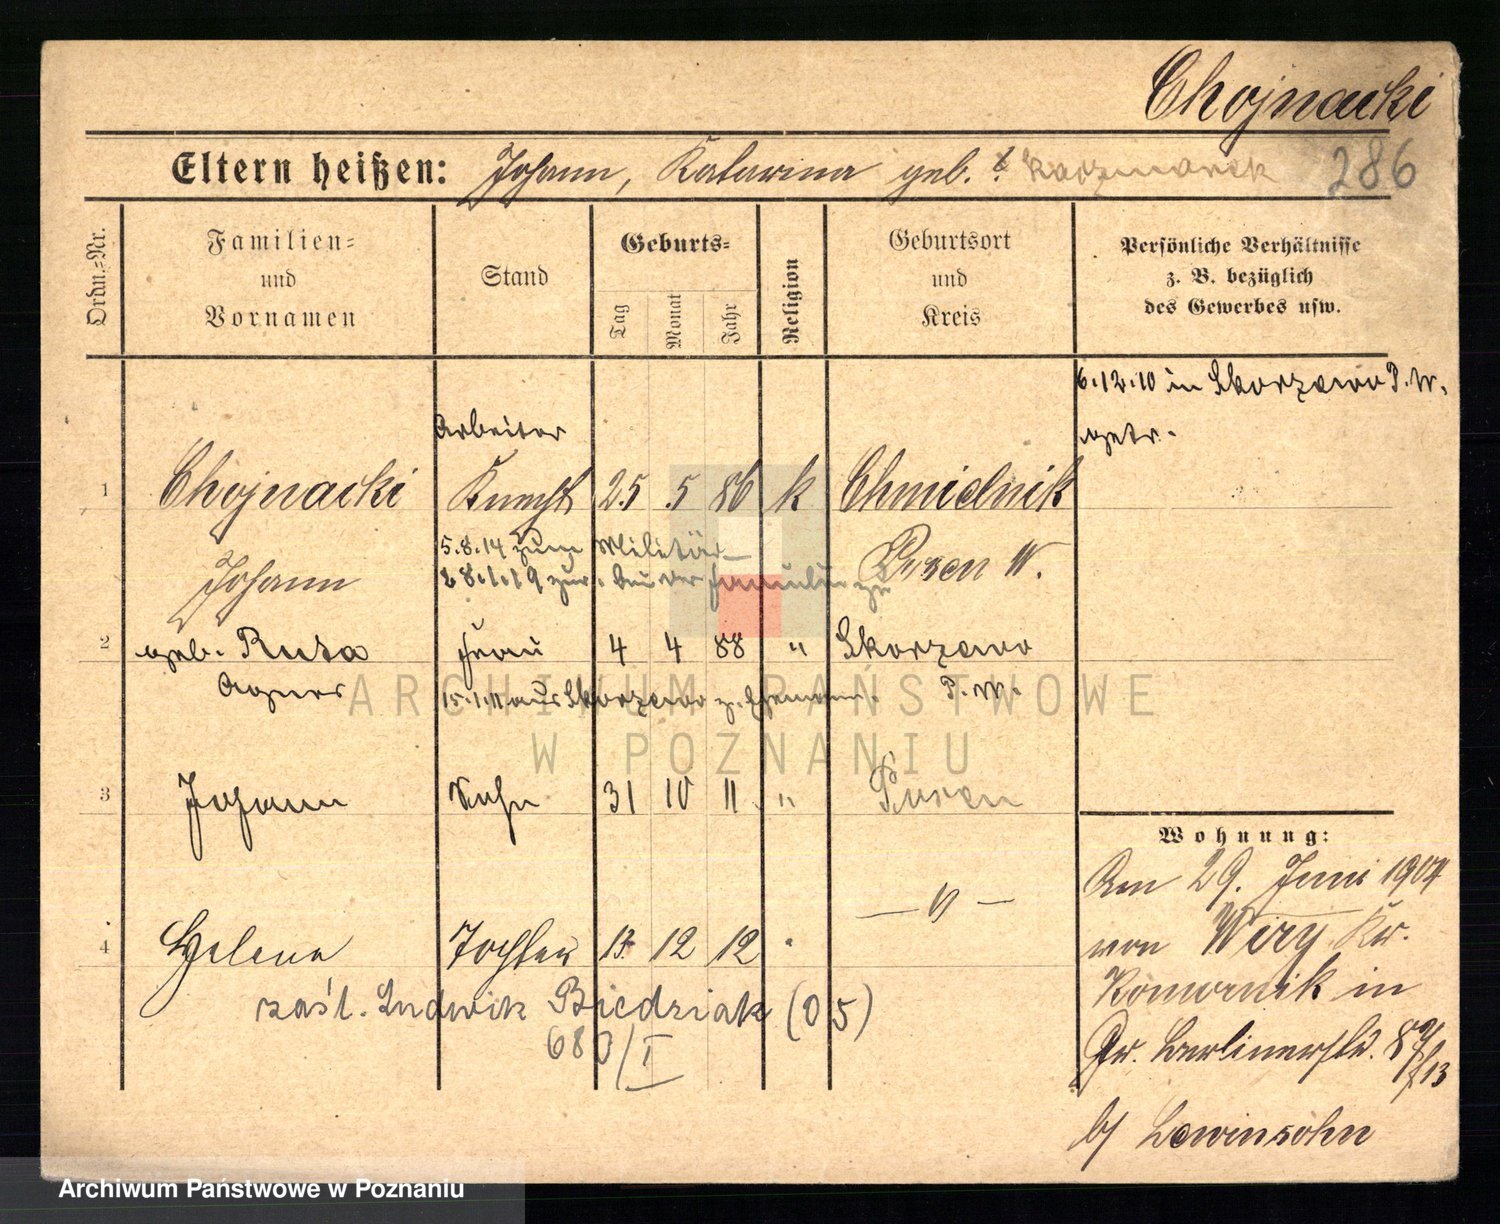 Chojnacki
Eltern heißen: Johann, Katarina geb. ? Kaczmarek 286
Ordn.=Nr.
Familien=
und
Vornamen
Stand
Geburts=
Tag
Monat
Jahr
Religion
Geburtsort
und
Kreis
Persönliche Verhältnisse
z. B. bezüglich
des Gewerbes usw.
6.12.10 in Skorzewo P.W.
getr.
Arbeiter
1 Chojnacki Knecht 25 5 86 k Chmielnik
Johann
5.8.14 zum Militär
28.1.19 zur. bei der Familie zu
Posen W.
2 geb. Ruta Frau 4 4 88 " Skorzewo
Agnes
15.1.11 aus Skorzewo z. Ehemann.
P.W.
3 Johann Sohn 31 10 11 " Posen
4 Helene Tochter 13 12 12 "
— " —
zaśl. Ludwik Biedziak (05)
680/I
Wohnung:
Am 29. Juni 1904
von Wiry Kr.
Komornik in
Gr. Berlinerstr. 89
b/ Lewinsohn
ARCHIWUM PAŃSTWOWE
W POZNANIU
Archiwum Państwowe w Poznaniu